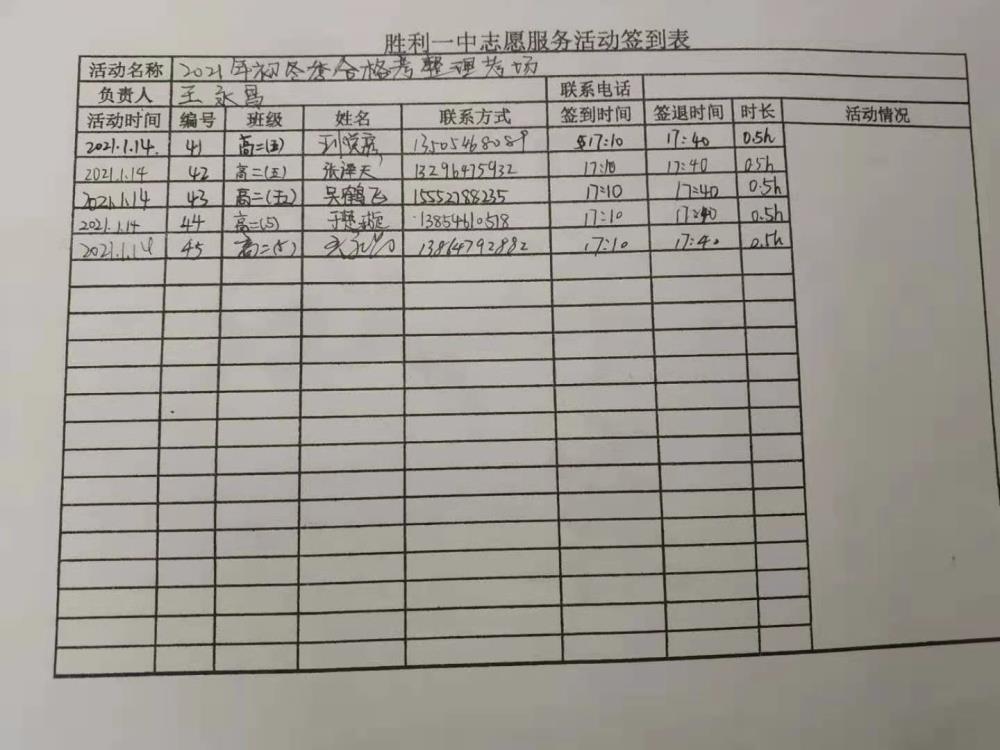 胜利一中志愿服务活动签到表
活动名称 2021年初冬季合格考整理考场
负责人 王永昌 联系电话
活动时间 编号 班级 姓名 联系方式 签到时间 签退时间 时长 活动情况
2021.1.14. 41 高二(五) 13505468089 17:10 17:40 0.5h
2021.1.14 42 高二(五) 张泽天 13296475932 17:10 17:40 0.5h
2021.1.14 43 高二(五) 吴鹤飞 15552788235 17:10 17:40 0.5h
2021.1.14 44 高二(5) 13854610518 17:10 17:40 0.5h
2021.1.14 45 高二(5) 13864792882 17:10 17:40 0.5h